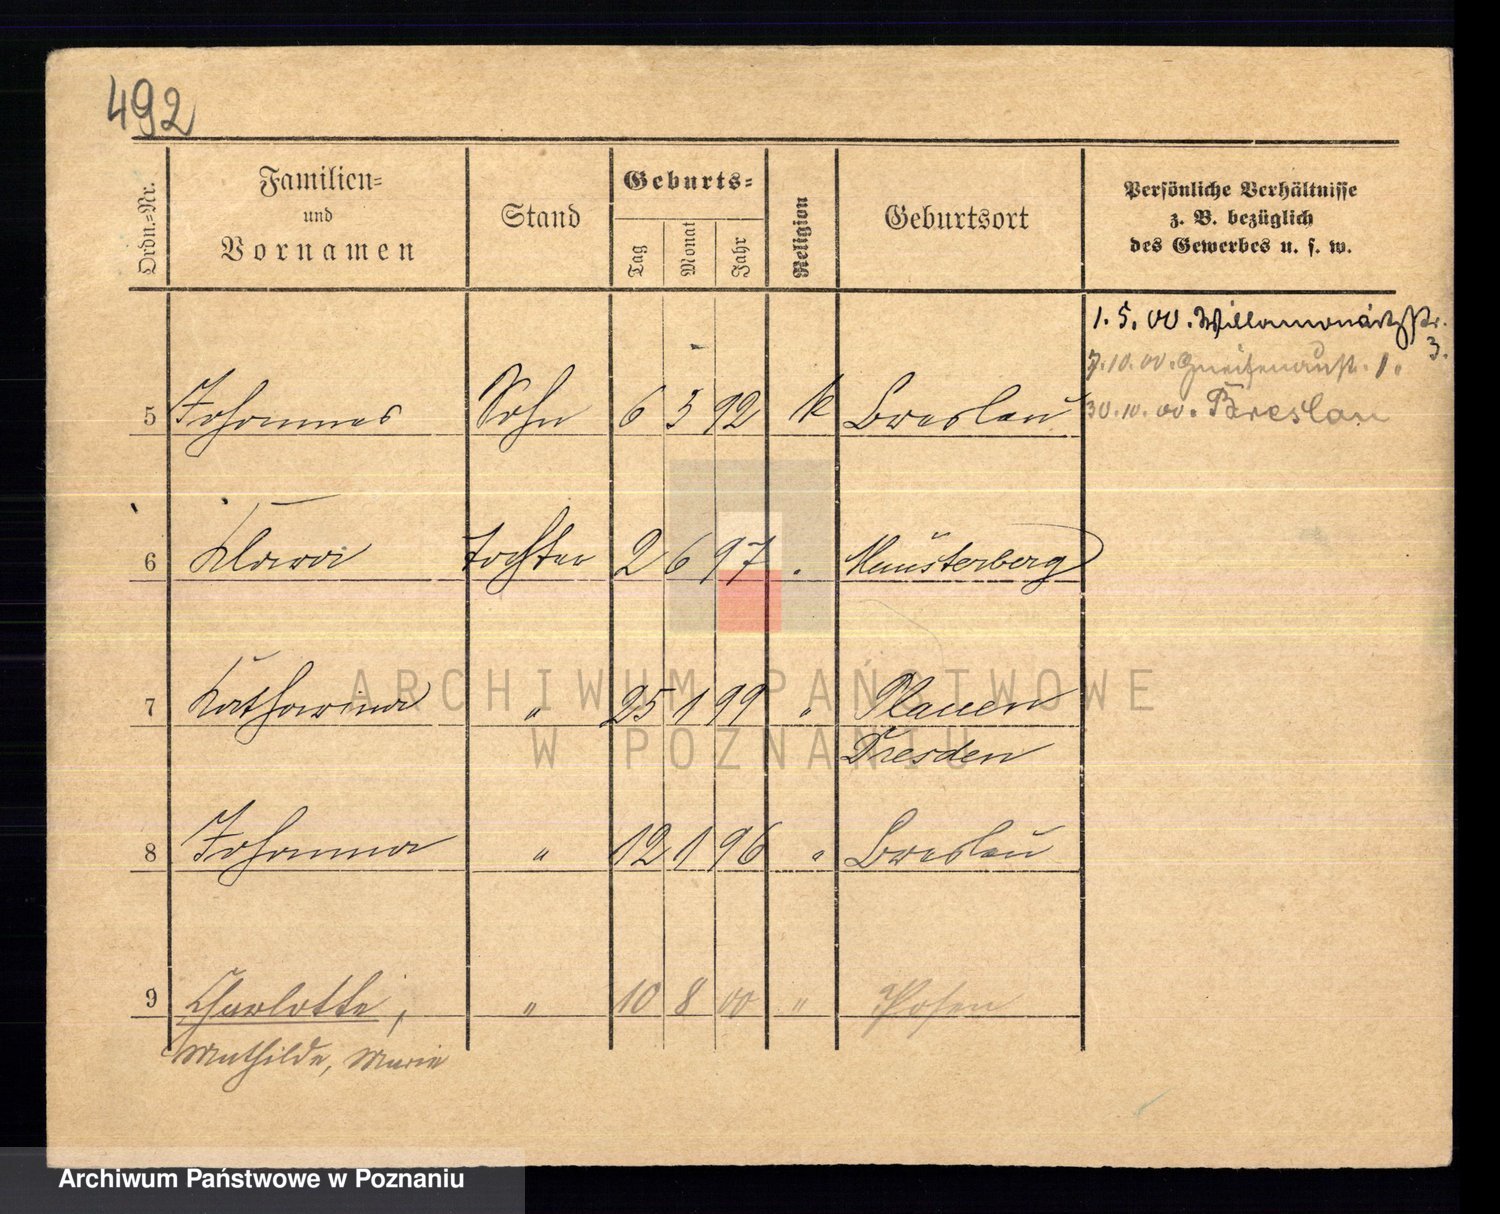 492
Ordn.=Nr.
Familien=
und
Vornamen
Stand
Geburts=
Tag
Monat
Jahr
Religion
Geburtsort
Persönliche Verhältnisse
z. B. bezüglich
des Gewerbes u. s. w.
1. 5. 00.
3.
7. 10. 00. Gneisenaustr. 1.
30. 10. 00. Breslau
5 Johannes Sohn 6 5 92 k Breslau
6 Klara Tochter 2 6 97 Münsterberg
7 Katharina " 25 1 99 " Plauen
Dresden
8 Johanna " 12 1 96 " Breslau
9 Charlotte, " 10 8 00 " Posen
Mathilde, Marie
ARCHIWUM PAŃSTWOWE
W POZNANIU
Archiwum Państwowe w Poznaniu